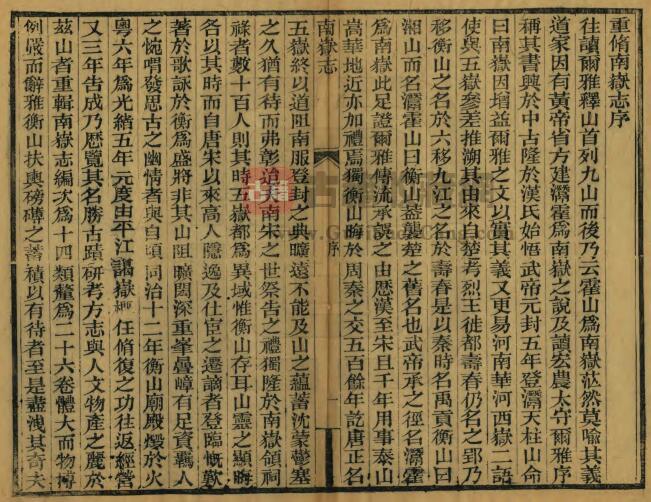 重脩南嶽志序
往讀爾雅釋山首列九山而後乃云霍山為南嶽茫然莫喻其義
道家因有黃帝省方建灊霍為南嶽之說及讀宏農太守爾雅序
稱其書興於中古隆於漢氏始悟武帝元封五年登灊天柱山命
曰南嶽因增益爾雅之文以實其義又更易河南華河西嶽二語
使與五嶽參差推溯其由來自楚考烈王徙都壽春仍名之郢乃
移衡山之名於六移九江之名於壽春是以秦時名禹貢衡山曰
湘山而名灊霍山曰衡山葢襲楚之舊名也武帝承之徑名灊霍
為南嶽此足證爾雅傳流承誤之由歷漢至宋且千年用事泰山
嵩華地近亦加禮焉獨衡山晦於周秦之交五百餘年訖唐正名
南嶽志
序
一
五嶽終以道阻南服登封之典曠遠不能及山之蘊蓄沈蒙鬱塞
之久猶有待而弗彰迨夫南宋之世祭告之禮獨隆於南嶽領祠
祿者數十百人則其時五嶽都為異域惟衡山存耳山靈之顯晦
各以其時而自唐宋以來高人隱逸及仕宦之遷謫者登臨慨歎
著於歌詠於衡為盛將非其山阻曠閎深重峯疊嶂有足資羈人
之惋唱發思古之幽情者與自頃同治十二年衡山廟殿燬於火
粵六年為光緒五年元度由平江謁嶽任脩復之功往返經營
又三年告成乃歷覽其名勝古蹟研考方志與人文物產之麗於
茲山者重輯南嶽志編次為十四類釐為二十六卷體大而物博
例嚴而辭雅衡山扶輿磅礴之蓄積以有待者至是盡洩其奇夫